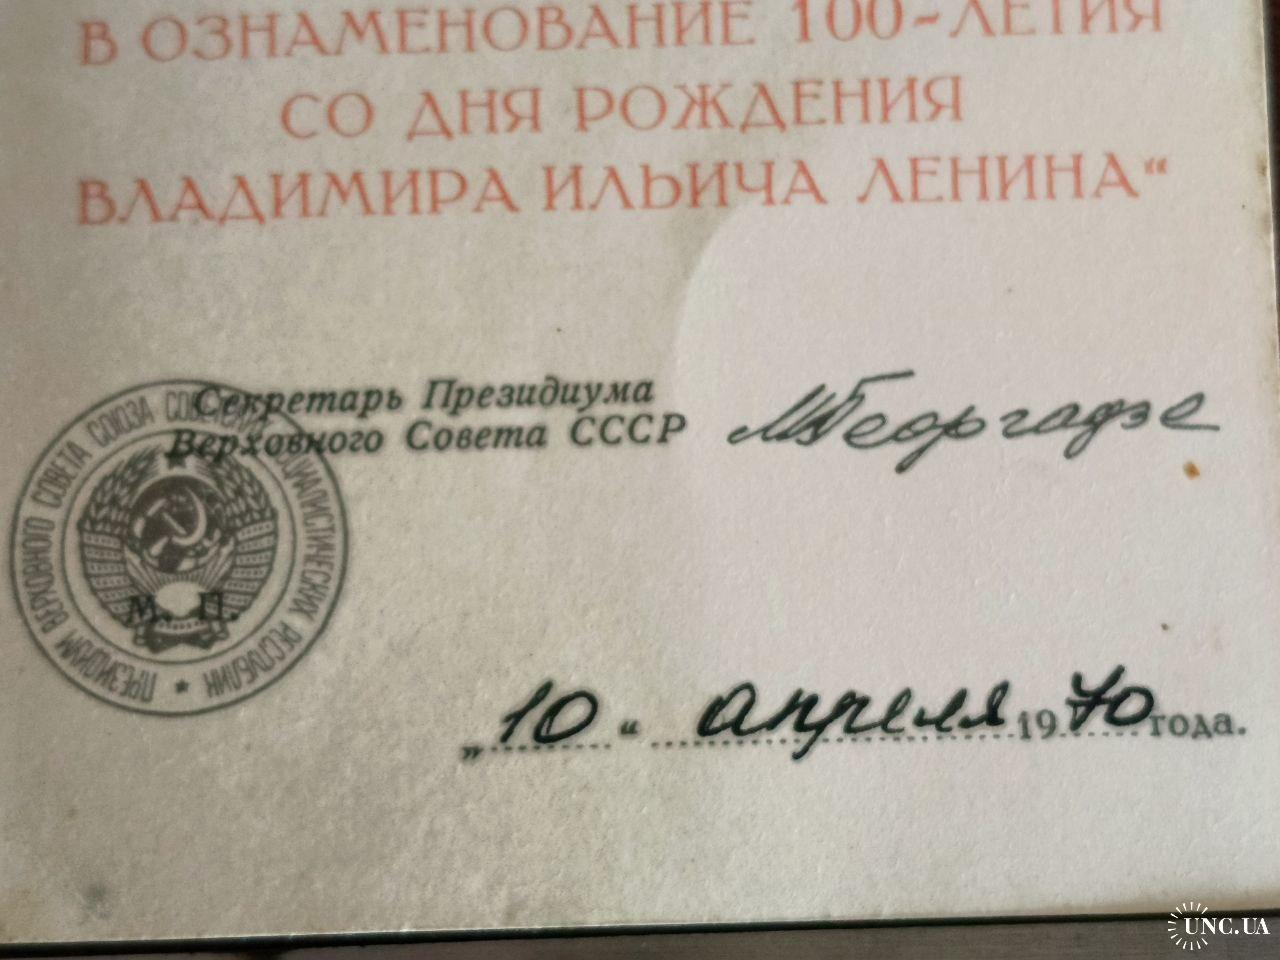 В ОЗНАМЕНОВАНИЕ 100-ЛЕТИЯ
СО ДНЯ РОЖДЕНИЯ
ВЛАДИМИРА ИЛЬИЧА ЛЕНИНА“
Секретарь Президиума
Верховного Совета СССР МГеоргадзе
ПРЕЗИДИУМ ВЕРХОВНОГО СОВЕТА СОЮЗА СОВЕТСКИХ СОЦИАЛИСТИЧЕСКИХ РЕСПУБЛИК
М. П.
„10“ апреля 1970 года.
UNC.UA